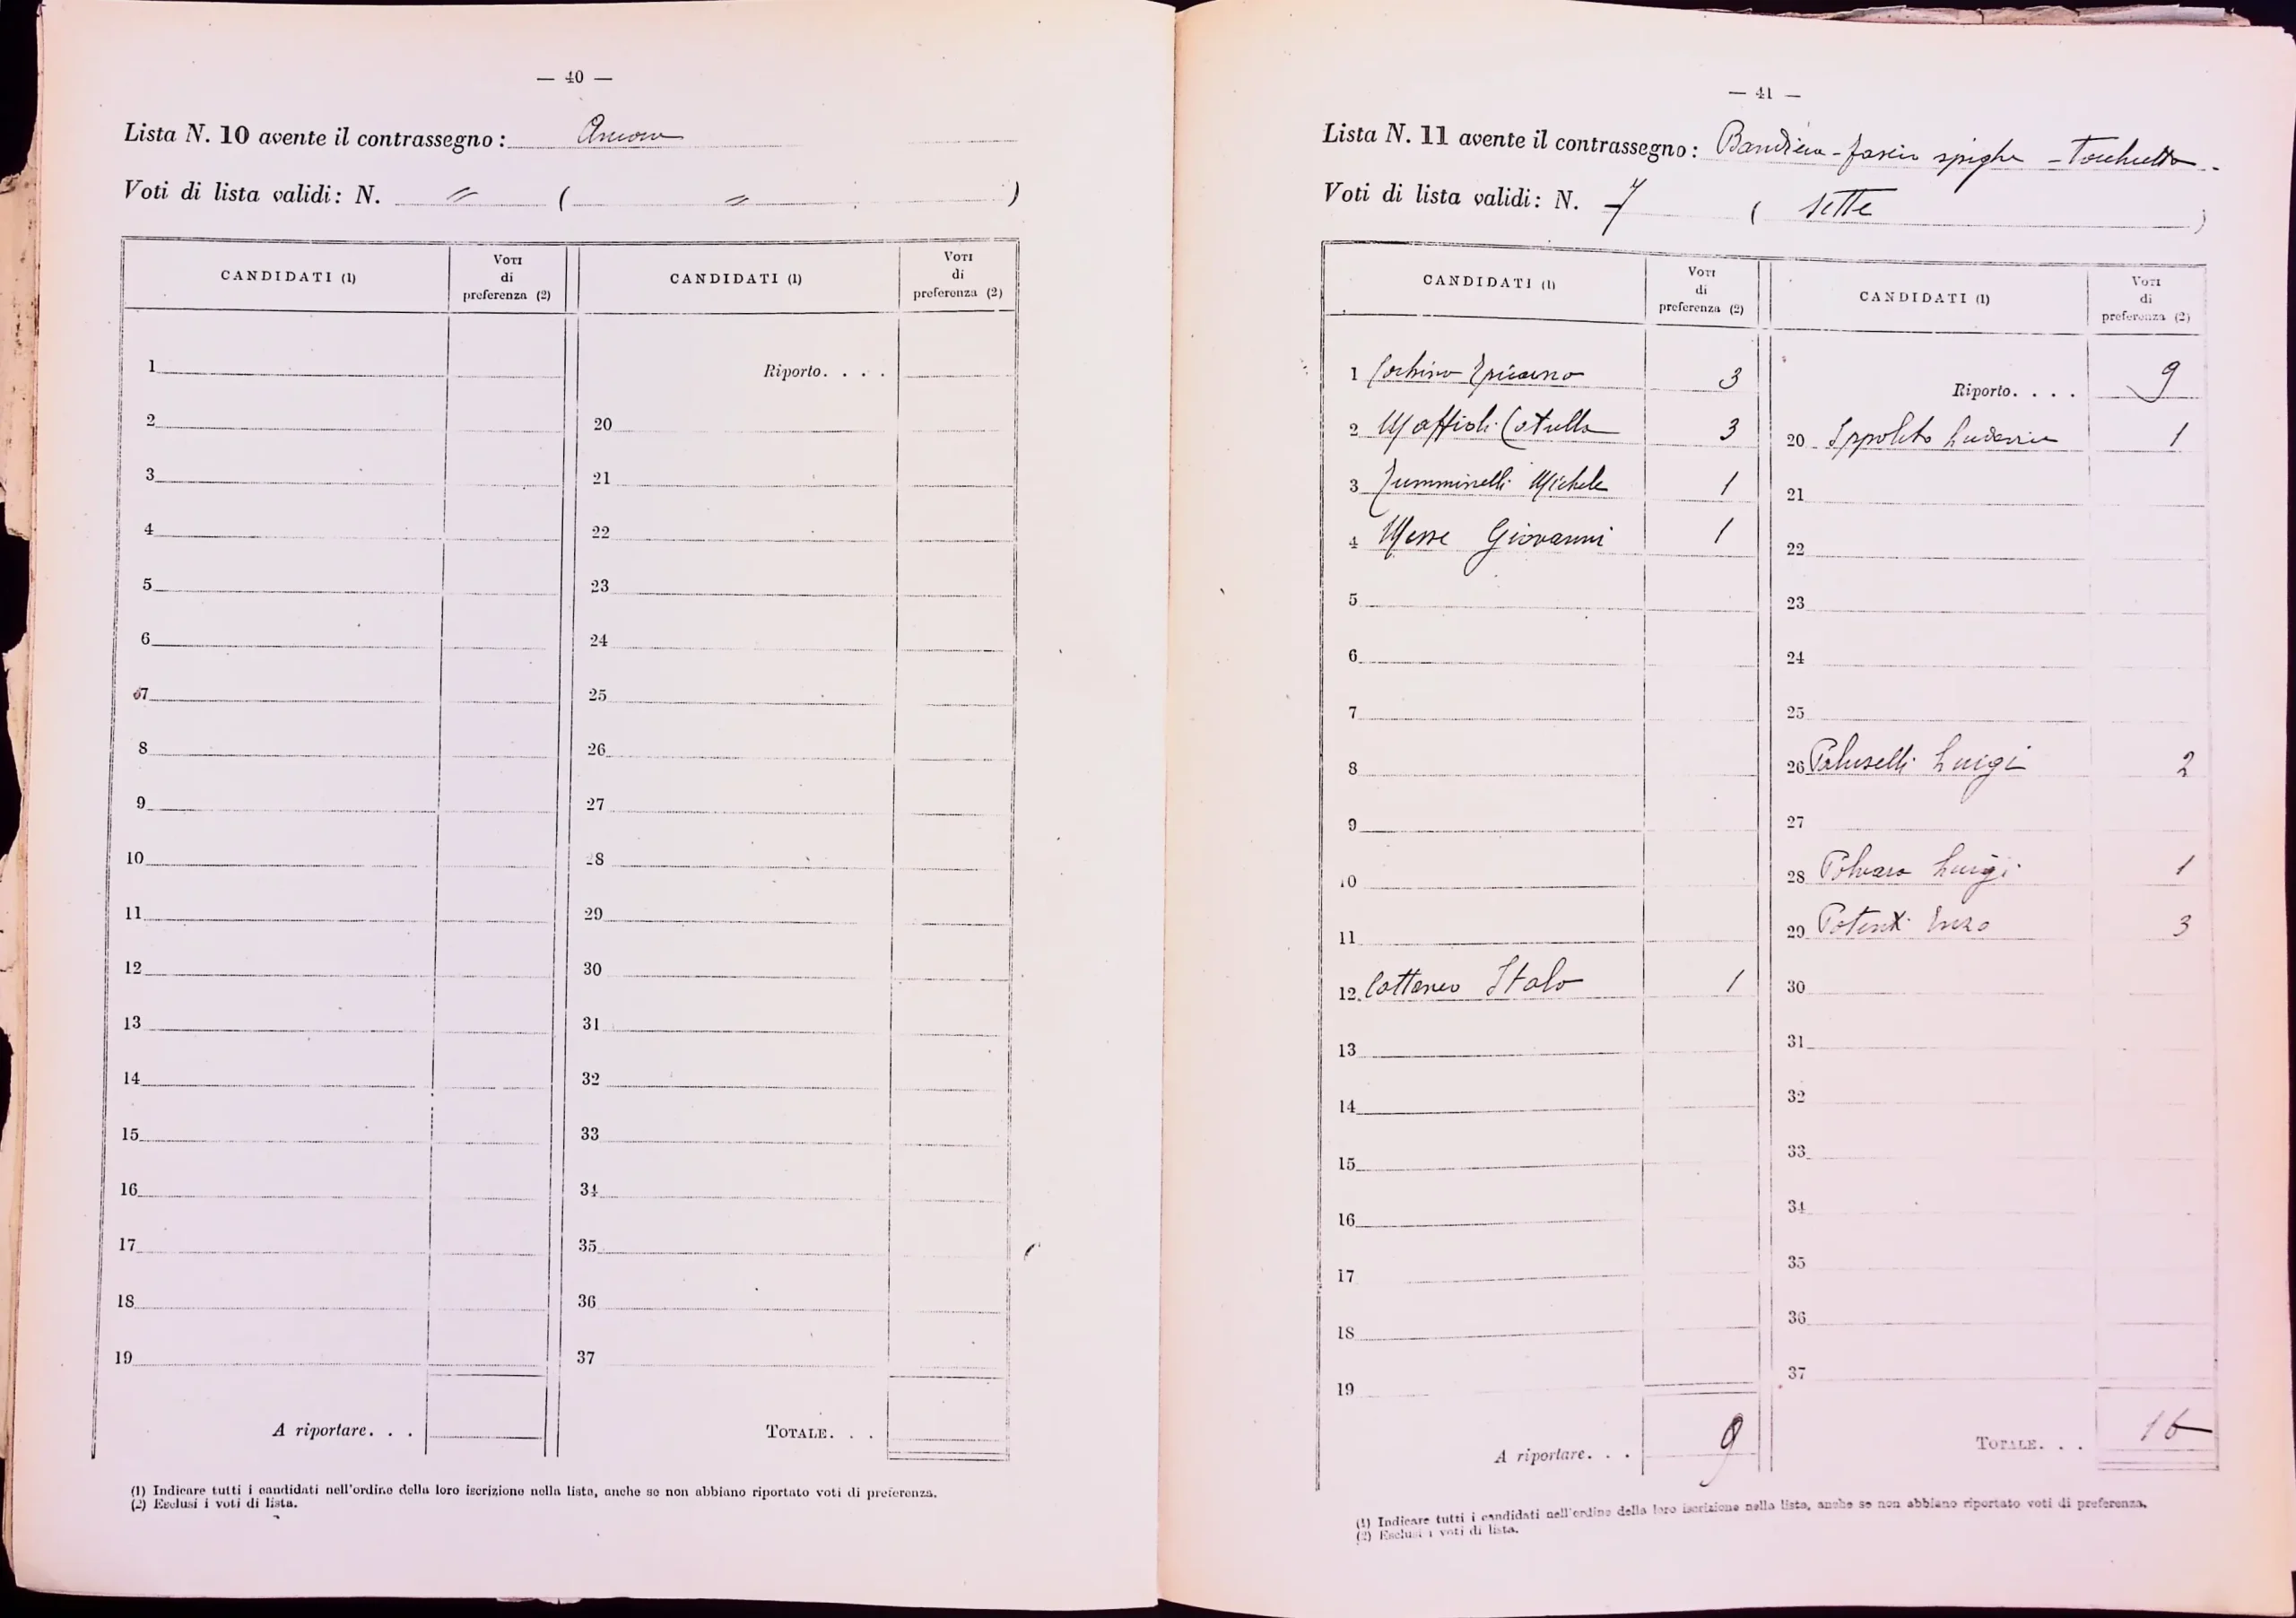 — 40 —
Lista N. 10 avente il contrassegno :
Voti di lista validi: N. 〃 ( 〃 )
CANDIDATI (1)
Voti
di
preferenza (2)
CANDIDATI (1)
Voti
di
preferenza (2)
1
2
3
4
5
6
7
8
9
10
11
12
13
14
15
16
17
18
19
A riportare. . .
Riporto. . . .
20
21
22
23
24
25
26
27
28
29
30
31
32
33
34
35
36
37
TOTALE. . .
(1) Indicare tutti i candidati nell'ordine della loro iscrizione nella lista, anche se non abbiano riportato voti di preferenza.
(2) Esclusi i voti di lista.
— 41 —
Lista N. 11 avente il contrassegno : Bandiera - fascio spighe - Torchietto -
Voti di lista validi: N. 7 ( sette )
CANDIDATI (1)
Voti
di
preferenza (2)
CANDIDATI (1)
Voti
di
preferenza (2)
1 3
2 Maffioli Catullo 3
3 Tumminelli Michele 1
4 Messe Giovanni 1
5
6
7
8
9
10
11
12 Cattaneo Italo 1
13
14
15
16
17
18
19
A riportare. . . 9
Riporto. . . . 9
20 Ippolito 1
21
22
23
24
25
26 Paluselli Luigi 2
27
28 Polvara Luigi 1
29 Potenti Enzo 3
30
31
32
33
34
35
36
37
TOTALE. . . 16
(1) Indicare tutti i candidati nell'ordine della loro iscrizione nella lista, anche se non abbiano riportato voti di preferenza.
(2) Esclusi i voti di lista.